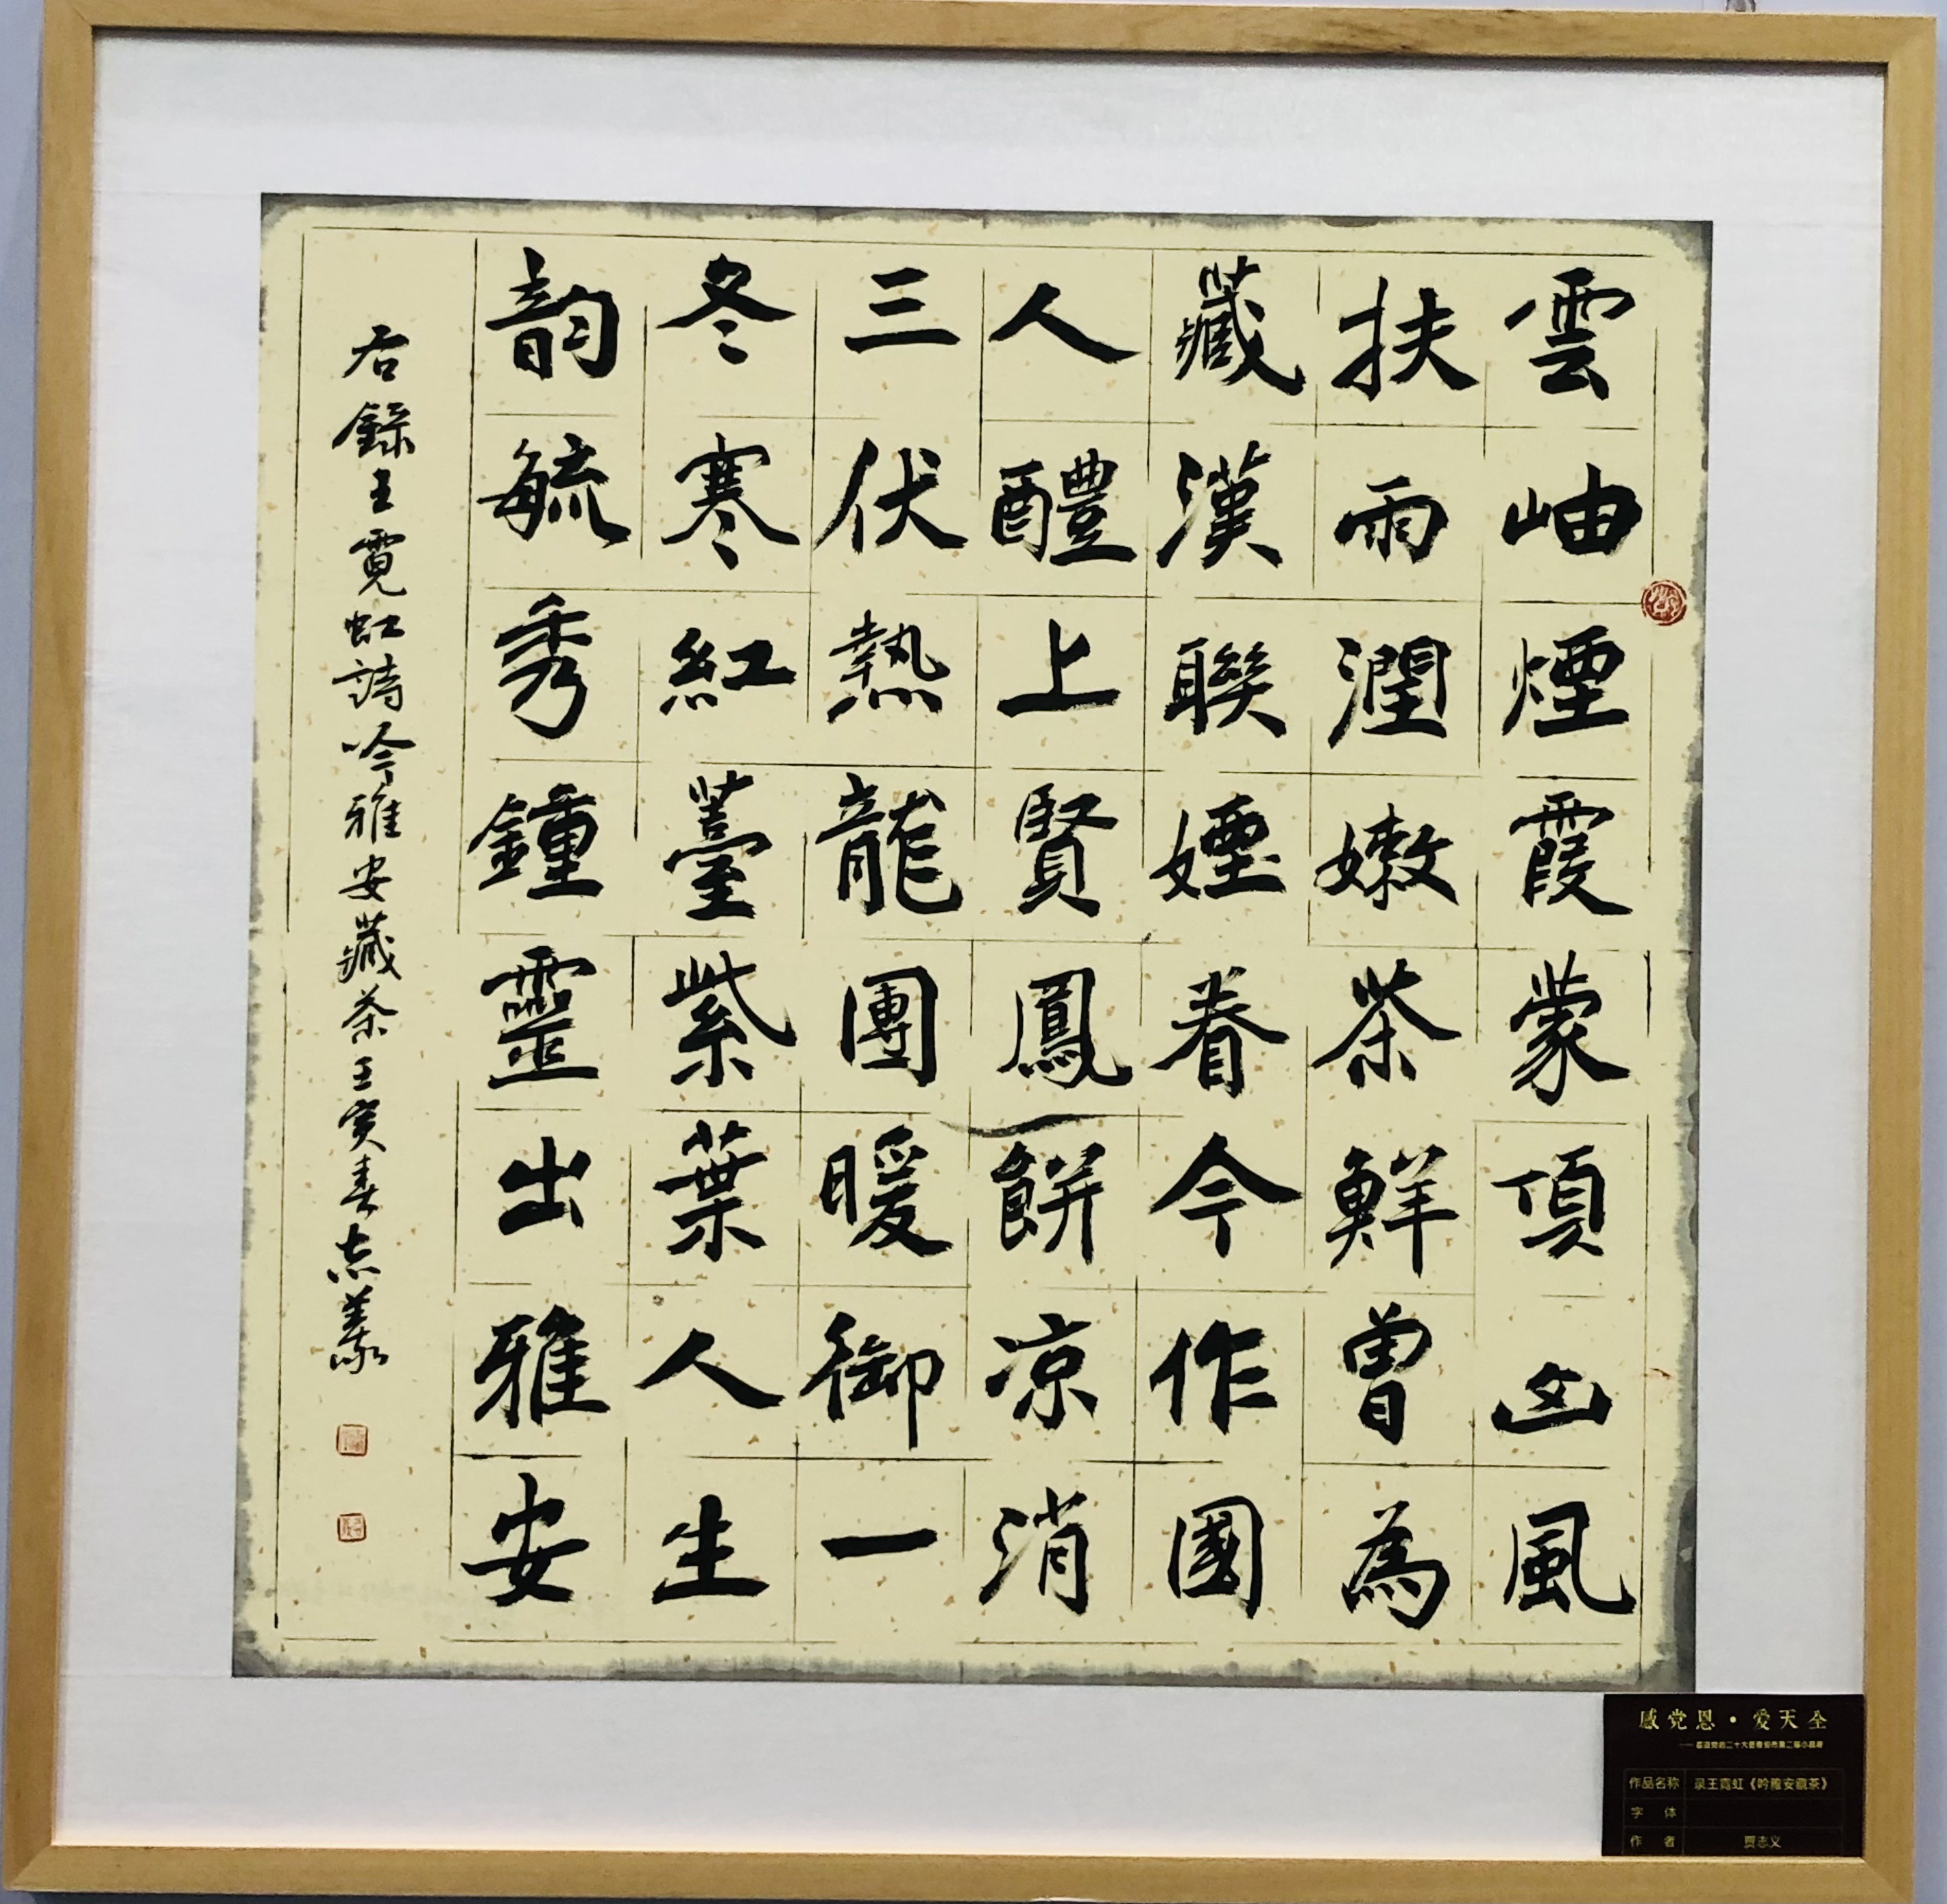 雲岫煙霞蒙頂山風
扶雨潤嫩茶鮮曾為
藏漢聯婬眷今作國
人醴上賢鳳餅凉消
三伏熱龍團暖御一
冬寒紅薹紫葉人生
韵毓秀鍾靈出雅安
右錄王霓虹詩吟雅安藏茶壬寅春志義
感党恩·爱天全
作品名称 录王霓虹《吟雅安藏茶》
字 体
作 者 贾志义